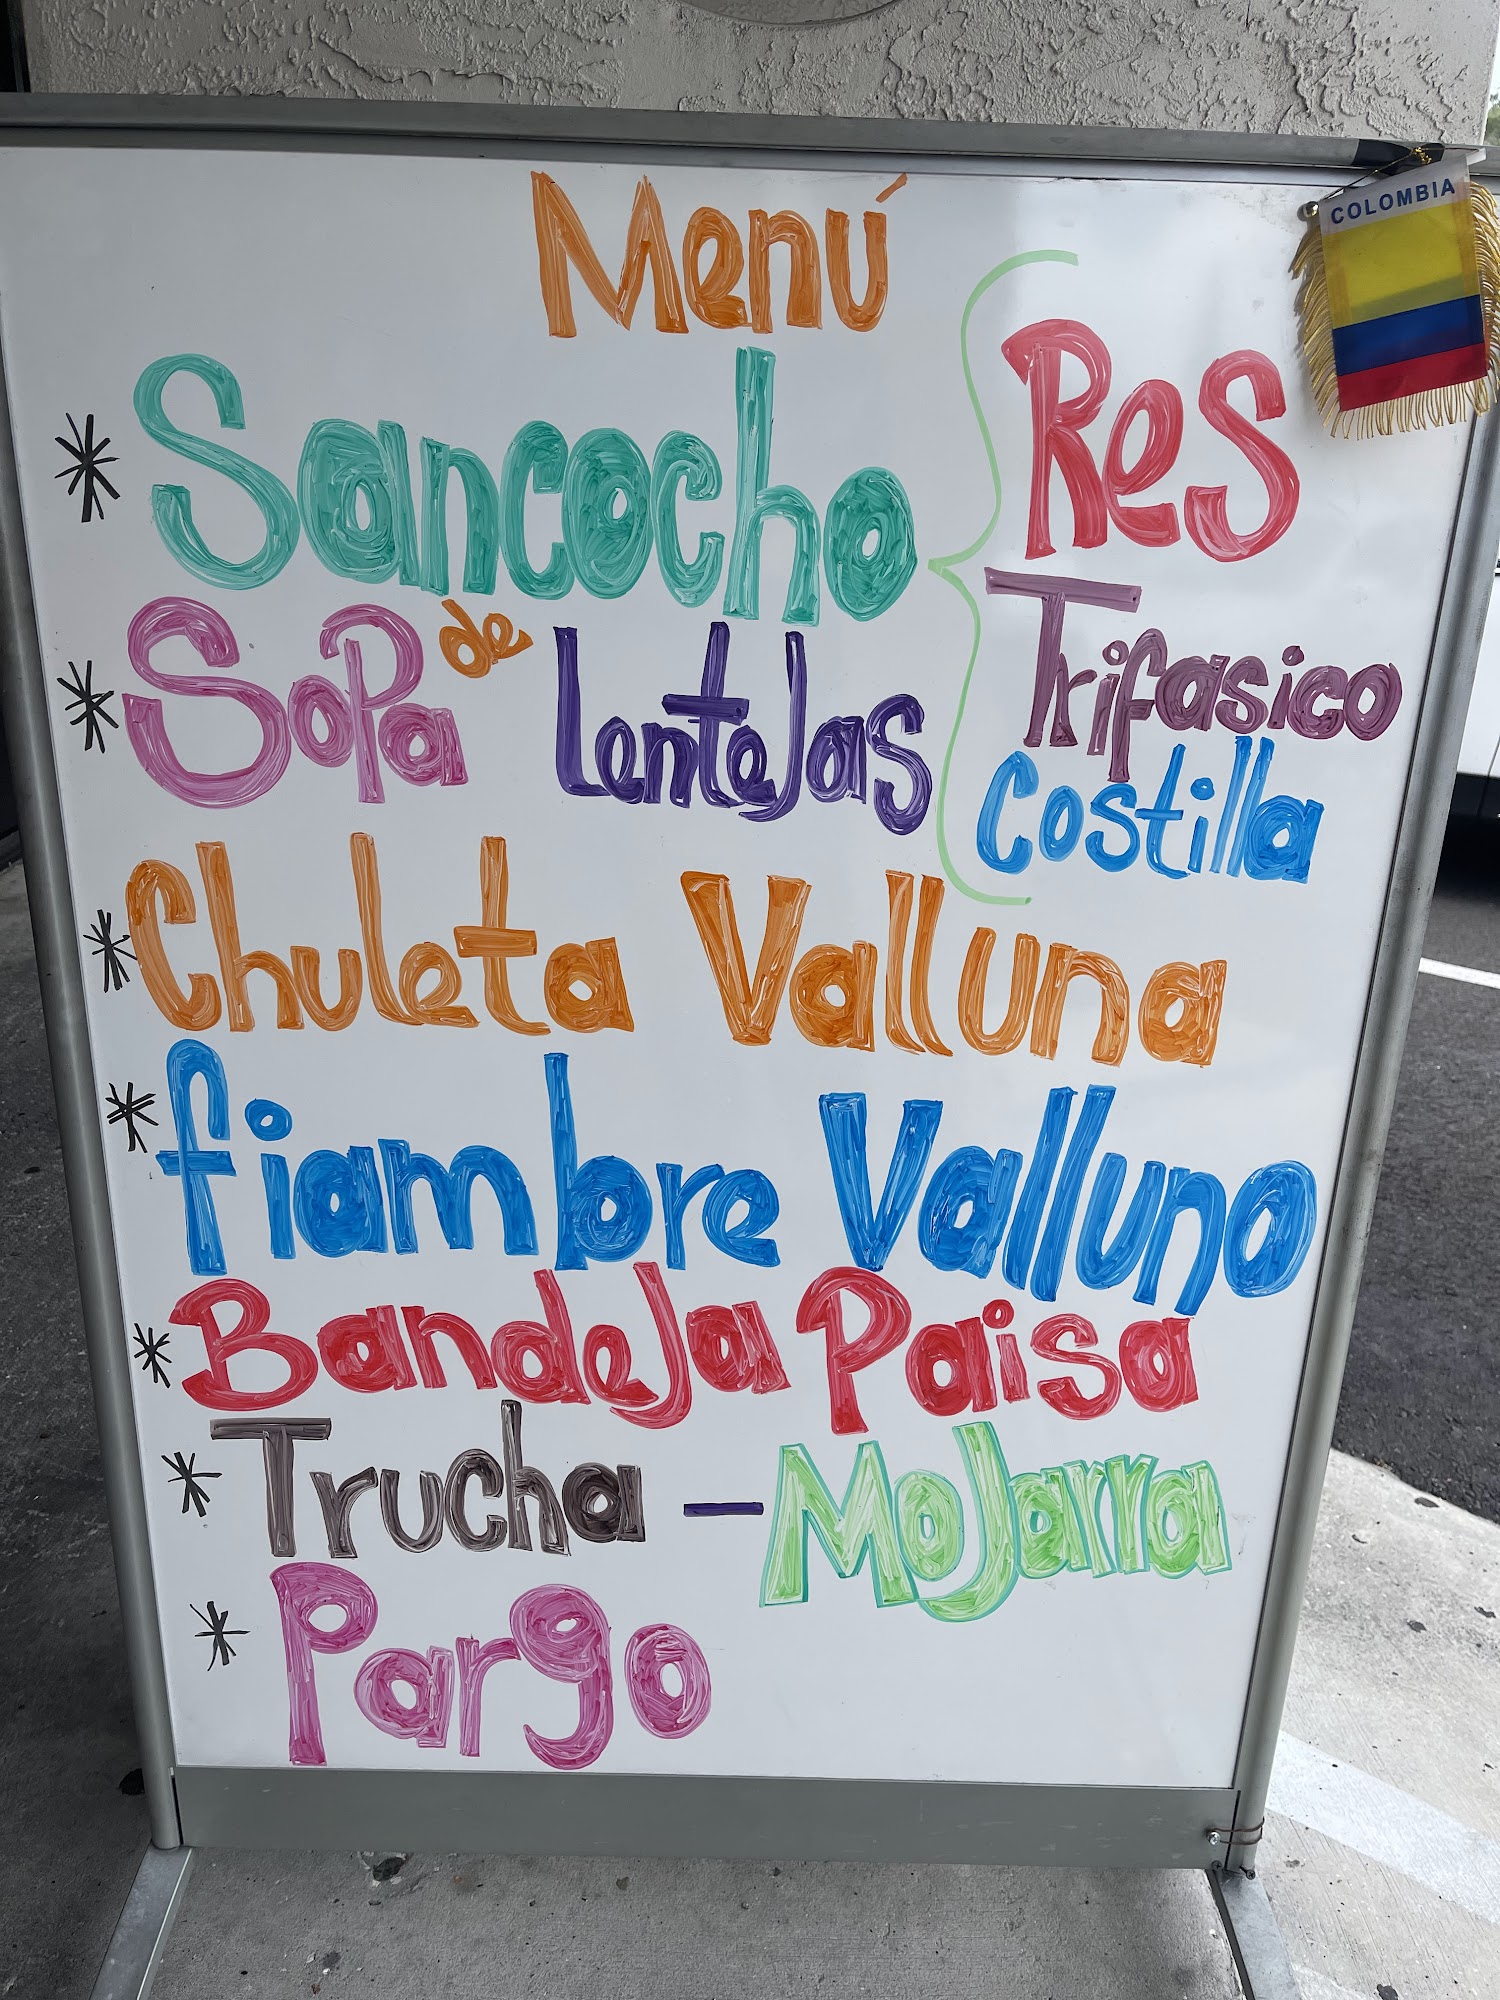 Menú
COLOMBIA
* Sancocho { Res
Trifasico
Costilla
* Sopa de Lentejas
* Chuleta Valluna
* fiambre Valluno
* Bandeja Paisa
* Trucha - Mojarra
* Pargo